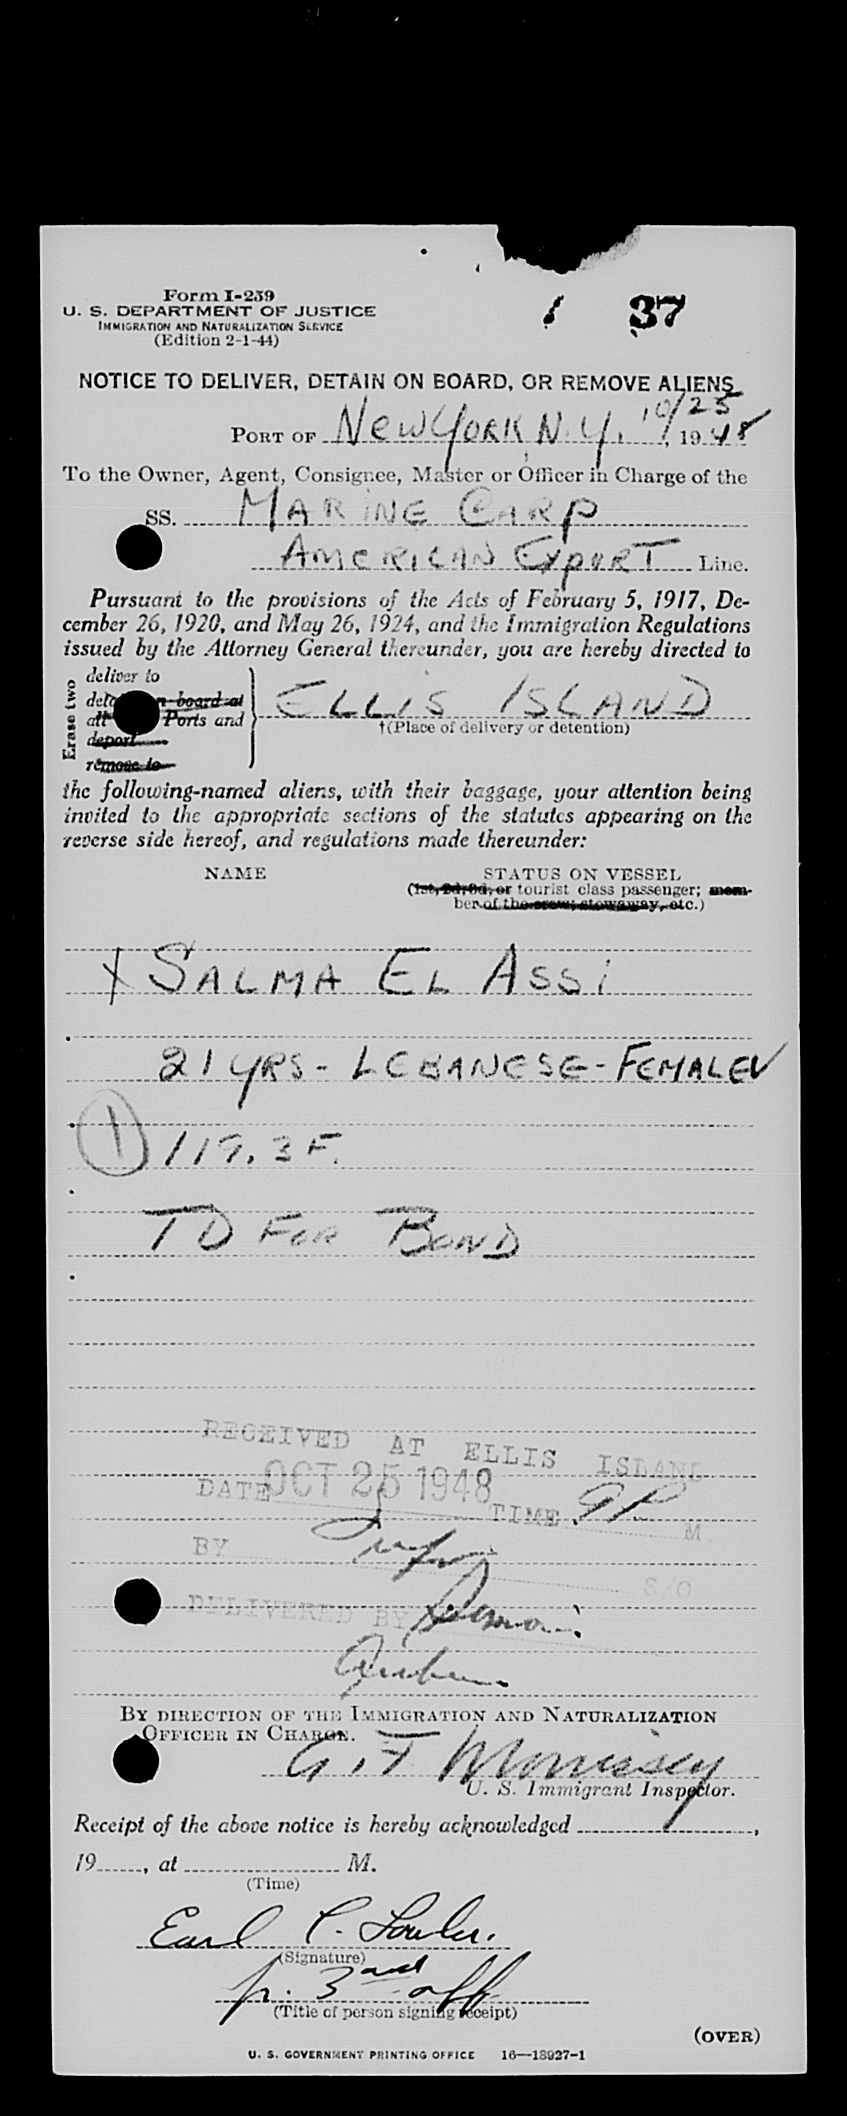 Form I-259
U. S. DEPARTMENT OF JUSTICE
IMMIGRATION AND NATURALIZATION SERVICE
(Edition 2-1-44)
1 37
NOTICE TO DELIVER, DETAIN ON BOARD, OR REMOVE ALIENS
PORT OF New York N.Y. 10/25, 1948
To the Owner, Agent, Consignee, Master or Officer in Charge of the
SS. MARINE CARP
AMERICAN EXPORT Line.
Pursuant to the provisions of the Acts of February 5, 1917, De-
cember 26, 1920, and May 26, 1924, and the Immigration Regulations
issued by the Attorney General thereunder, you are hereby directed to
Erase two
deliver to
on board at
all Ports and
deport
remove to
ELLIS ISLAND
†(Place of delivery or detention)
the following-named aliens, with their baggage, your attention being
invited to the appropriate sections of the statutes appearing on the
reverse side hereof, and regulations made thereunder:
NAME STATUS ON VESSEL
(1st, 2d, 3d, or tourist class passenger; mem-
ber of the crew; stowaway, etc.)
X SALMA EL ASSI
21 YRS - LEBANESE - FEMALE ✓
1 119.3 F.
TD FOR BOND
RECEIVED AT ELLIS ISLAND
DATE OCT 25 1948 TIME 9P M.
BY S/O
DELIVERED BY
BY DIRECTION OF THE IMMIGRATION AND NATURALIZATION
OFFICER IN CHARGE.
G. F Morrissey
U. S. Immigrant Inspector.
Receipt of the above notice is hereby acknowledged ,
19 , at M.
(Time)
Earl P.
(Signature)
3rd off
(Title of person signing receipt)
(OVER)
U. S. GOVERNMENT PRINTING OFFICE 16—18927-1